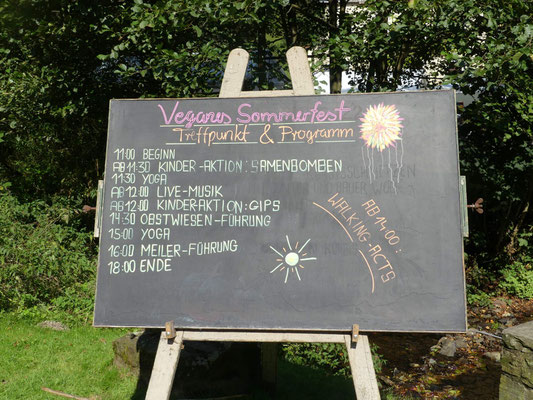 Veganes Sommerfest
Treffpunkt & Programm
11:00 BEGINN
AB 11:30 KINDER-AKTION: SAMENBOMBEN
11:30 YOGA
AB 12:00 LIVE-MUSIK
AB 12:00 KINDERAKTION: GIPS
14:30 OBSTWIESEN-FÜHRUNG
15:00 YOGA
16:00 MEILER-FÜHRUNG
18:00 ENDE
AB 14:00:
WALKING-ACTS